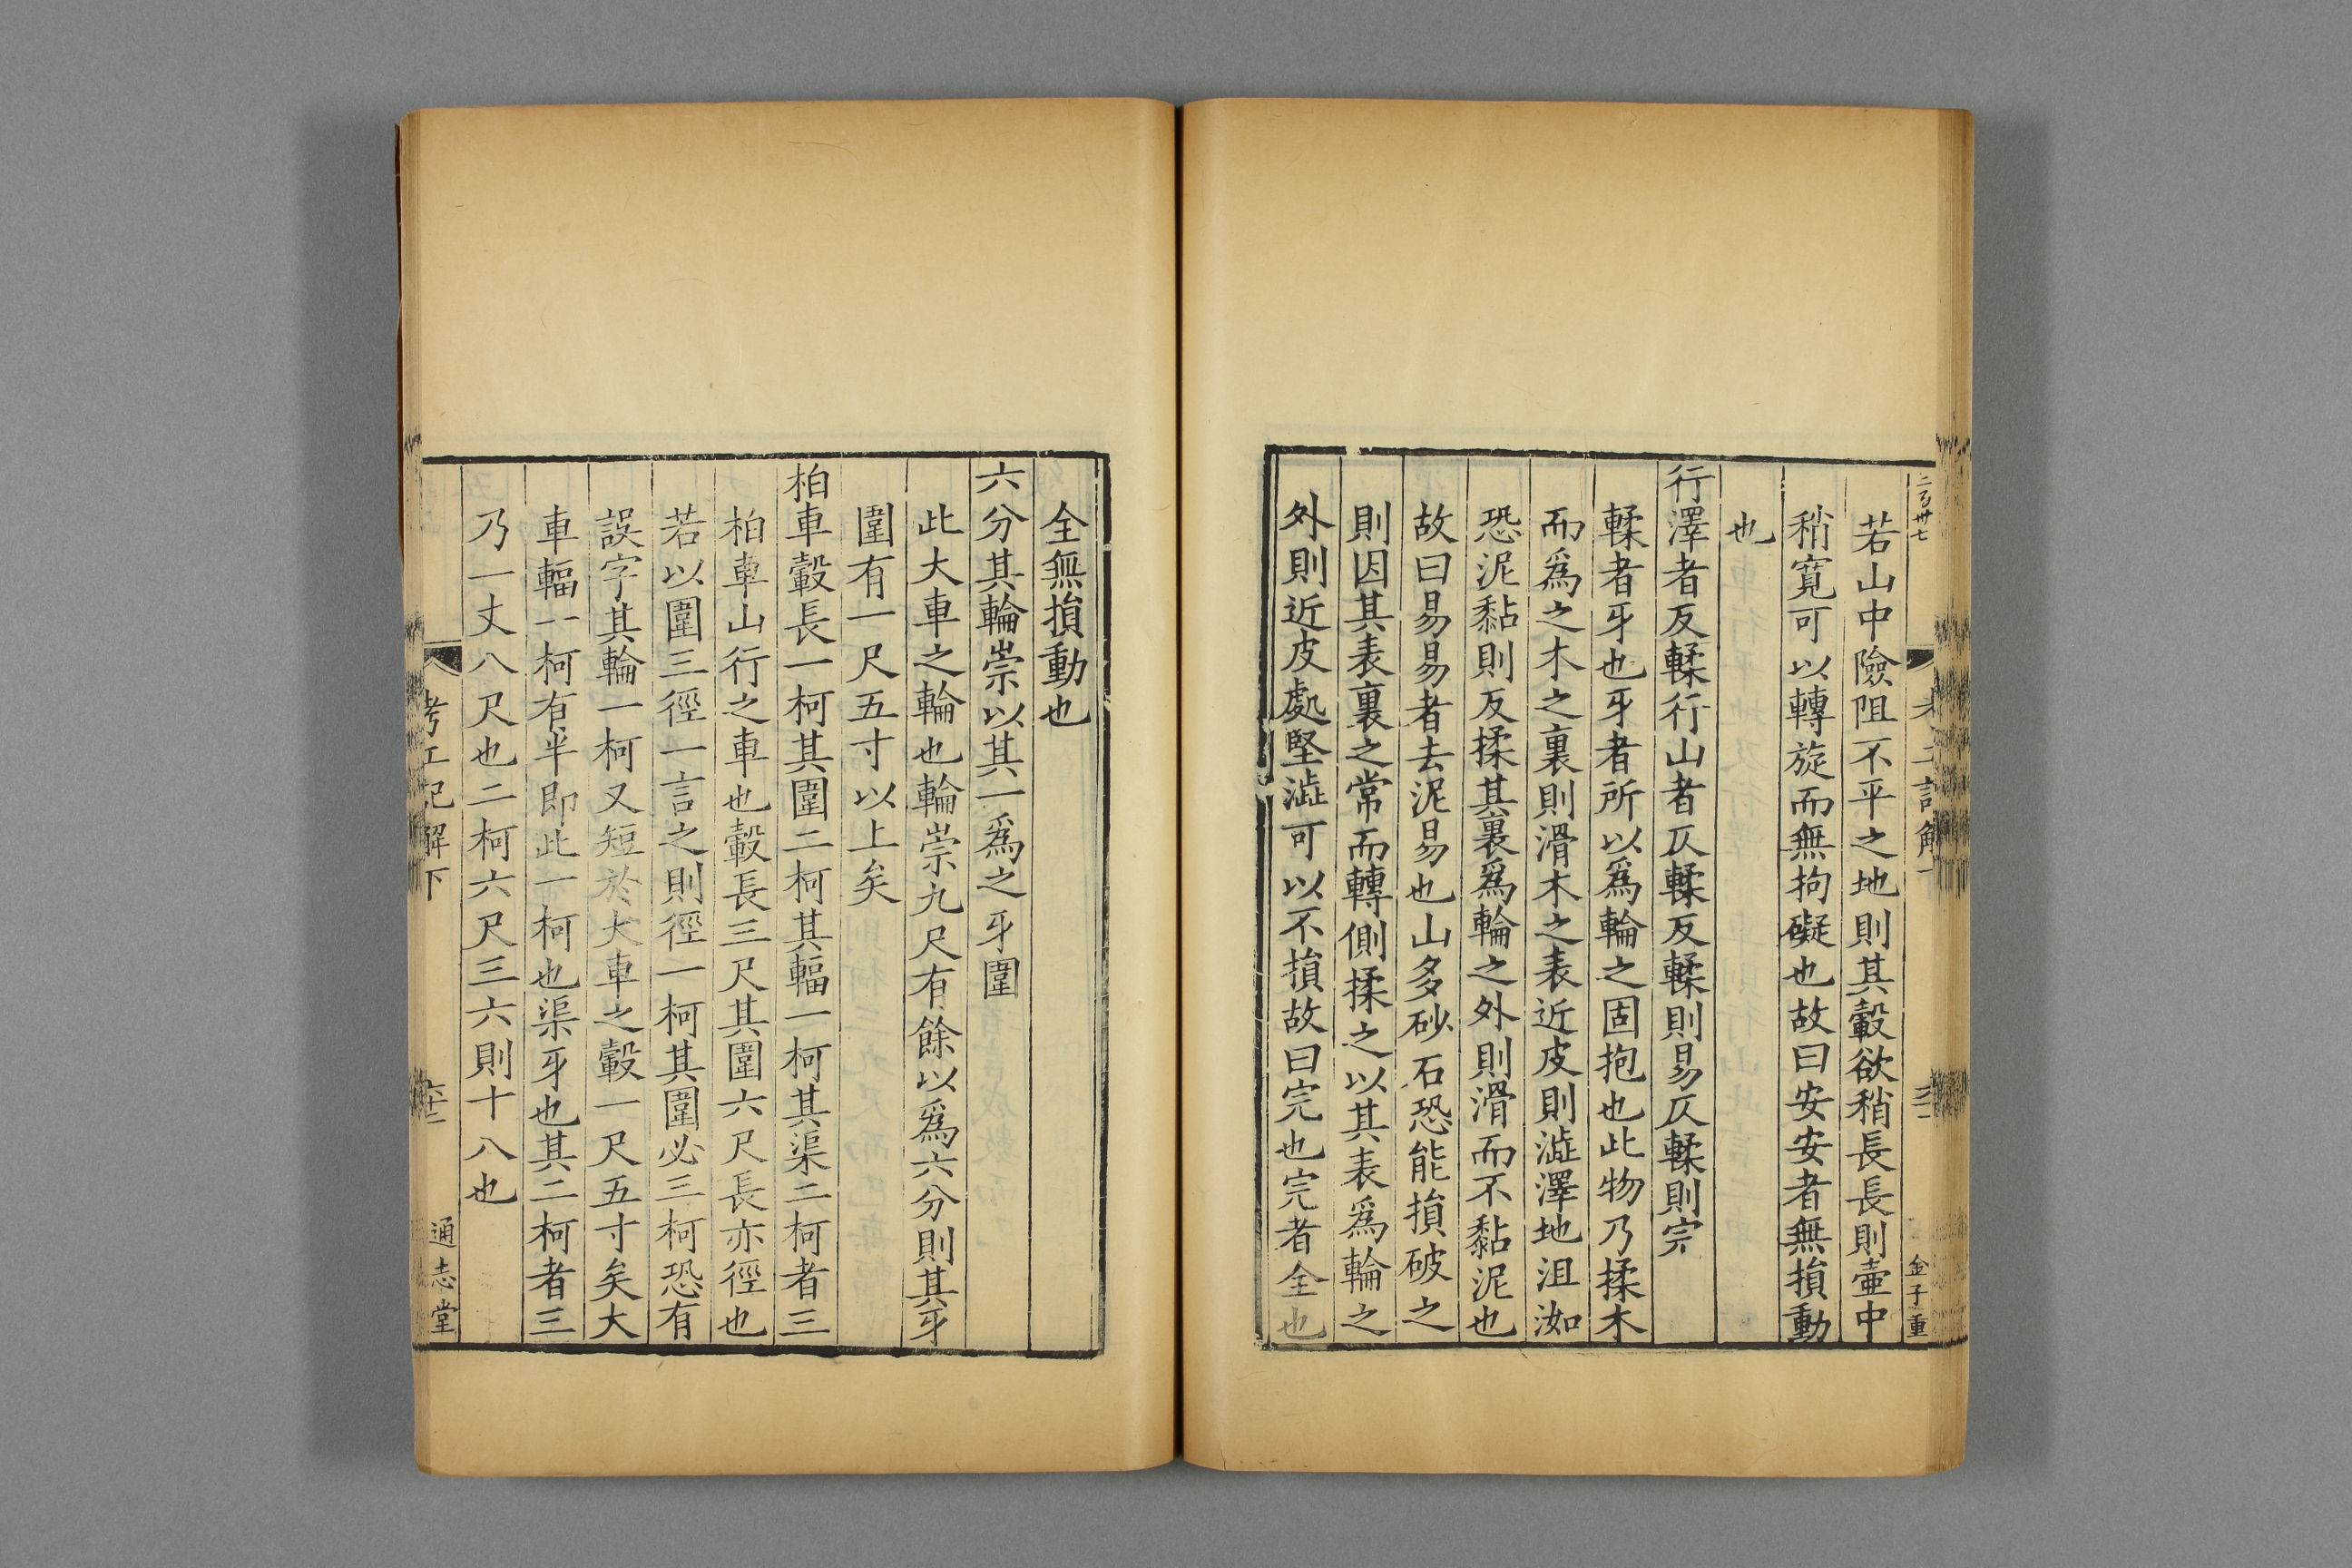 二百卅七
金子重
若山中險阻不平之地則其轂欲稍長長則壷中
稍寛可以轉旋而無拘礙也故曰安安者無損動
也
行澤者反輮行山者仄輮反輮則易仄輮則完
輮者牙也牙者所以爲輪之固抱也此物乃揉木
而爲之木之裏則滑木之表近皮則澁澤地沮洳
恐泥黏則反揉其裏爲輪之外則滑而不黏泥也
故曰易易者去泥易也山多砂石恐能損破之
則因其表裏之常而轉側揉之以其表爲輪之
外則近皮處堅澁可以不損故曰完也完者全也
全無損動也
六分其輪崇以其一爲之牙圍
此大車之輪也輪崇九尺有餘以爲六分則其牙
圍有一尺五寸以上矣
柏車轂長一柯其圍二柯其輻一柯其渠二柯者三
柏車山行之車也轂長三尺其圍六尺長亦徑也
若以圍三徑一言之則徑一柯其圍必三柯恐有
誤字其輪一柯又短於大車之轂一尺五寸矣大
車輻一柯有半即此一柯也渠牙也其二柯者三
乃一丈八尺也二柯六尺三六則十八也
考工記解下
通志堂